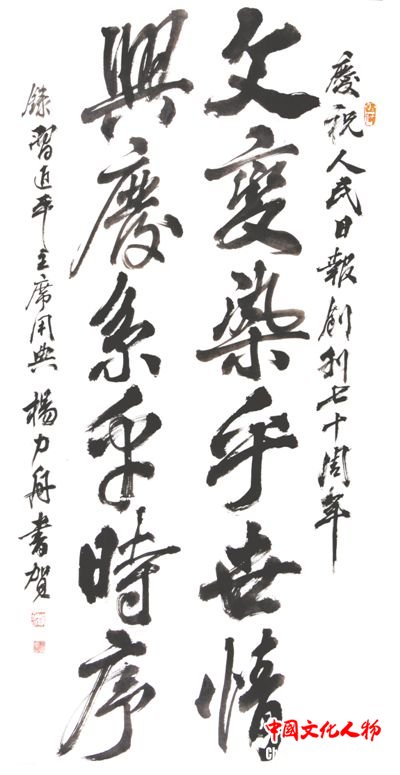 慶祝人民日報創刊七十周年
文變染乎世情
興廢系乎時序
錄習近平主席用典 楊力舟書賀
中國文化人物